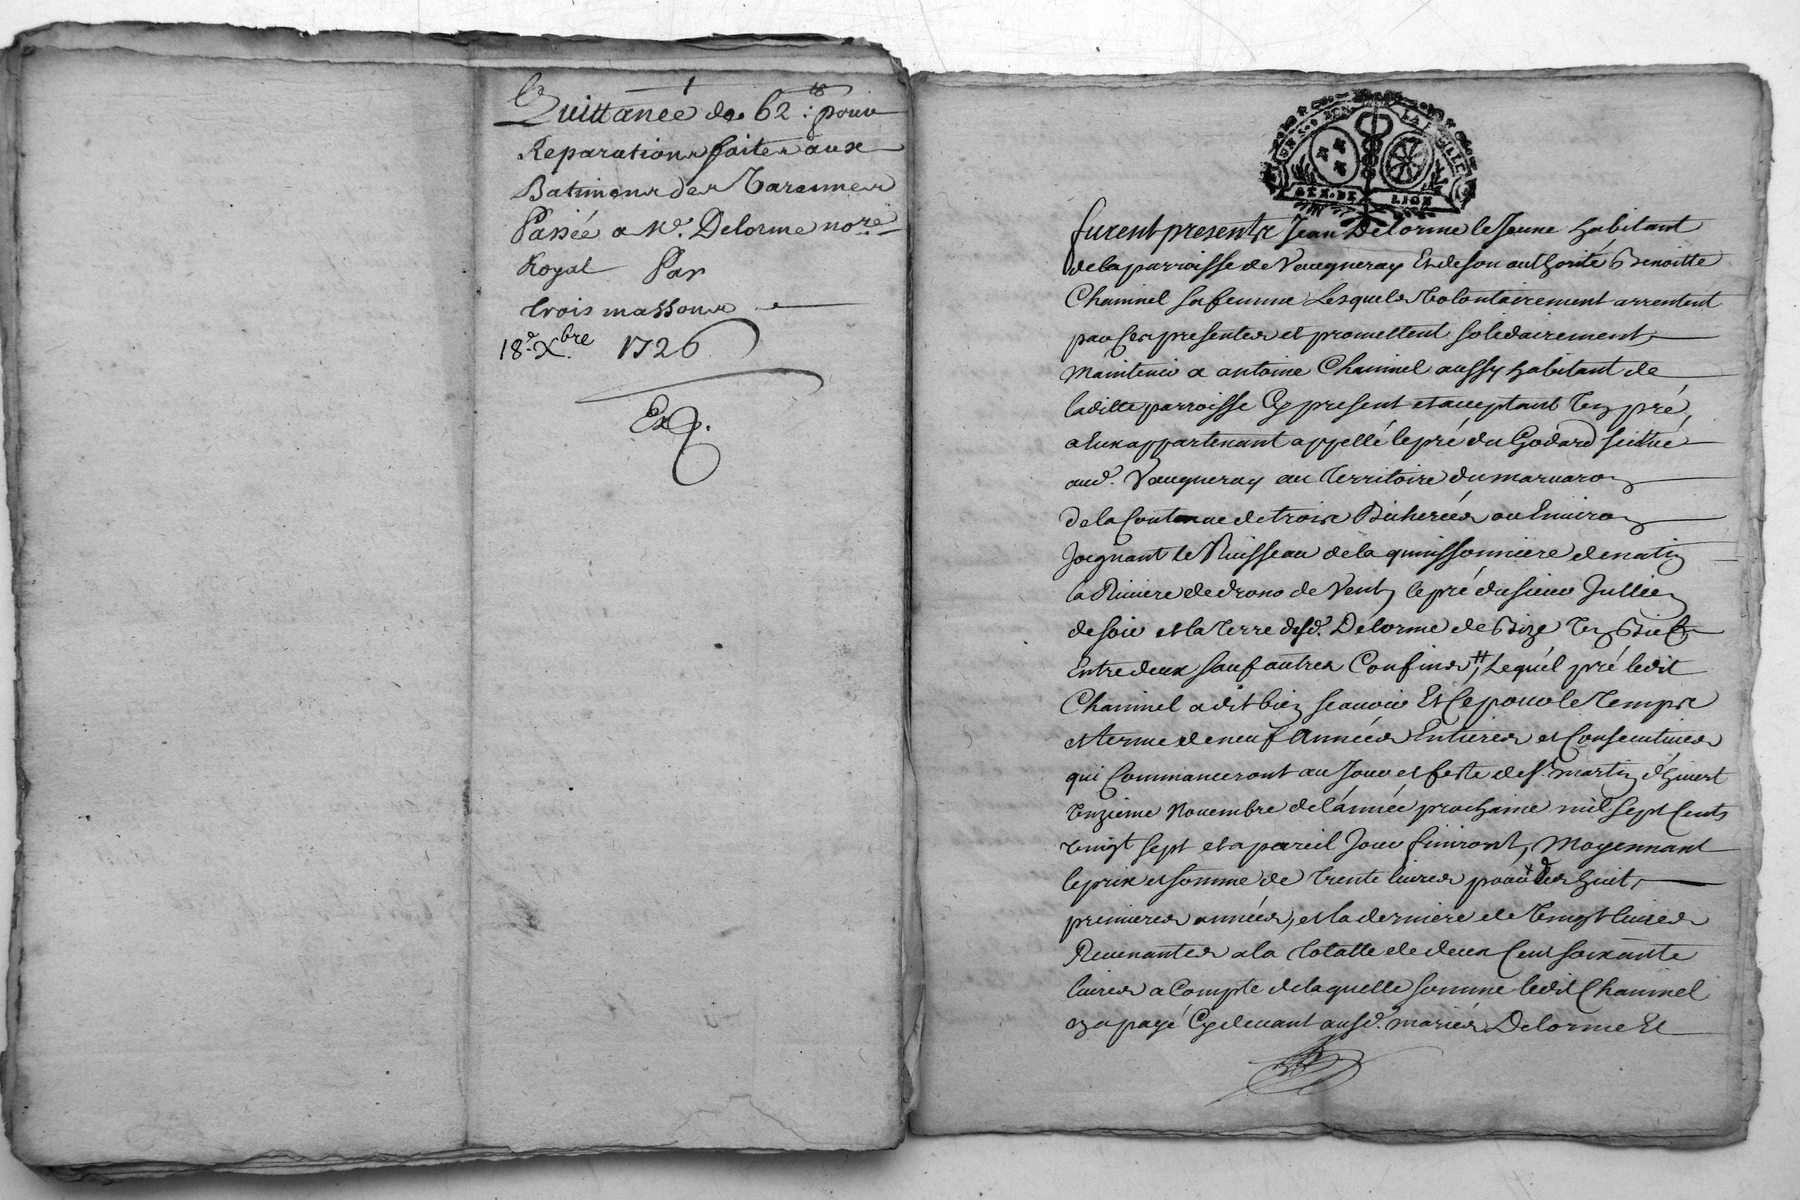 Quittance de 62 ᵗᵗ: pour
Reparations faites aux
Batimens des Tarennes
Passée a Mᵉ. Delorme noʳᵉ
Royal Par
trois massons
18ᵉ. Xbre 1726
Exp.
GEN. DE LION
furent presents Jean Delorme le Jeune habitant
de la parroisse de Vaugneray Et de son authorité Benoitte
Chaminel sa femme Lesquels volontairement arrentent
par ces presentes et promettent solidairement
maintenir a antoine Chaminel aussy habitant de
laditte parroisse Cy present et acceptant Un pré
a Eux appartenant appellé le pré du Godard scittué
aud. Vaugneray au Territoire du marvaron
de la Contenue de trois Bicherées ou Environ
Joignant le Ruisseau de la quinssonniere de matin
la Riviere de drono de Vent, le pré du sieur Jullien
de soir et la Terre desd. Delorme de Bize Un Bief
Entredeux sauf autres Confins ; Lequel pré ledit
Chaminel a dit bien scauoir Et Ce pour le Temps
et terme de neuf Années Entieres et Consecutives
qui Commanceront au Jour et feste de sᵗ. martin d'hivert
Unzieme Novembre de l'année prochaine mil sept Cents
vingt sept et a pareil Jour finiront, Moyennant
le prix et somme de Trente livres pour les huit
premieres années, et la derniere de Vingt livres
Revenantes a la Totalle de deux Cent soixante
livres a Compte de laquelle somme ledit Chaminel
en a payé Cy devant ausd. mariés Delorme Et